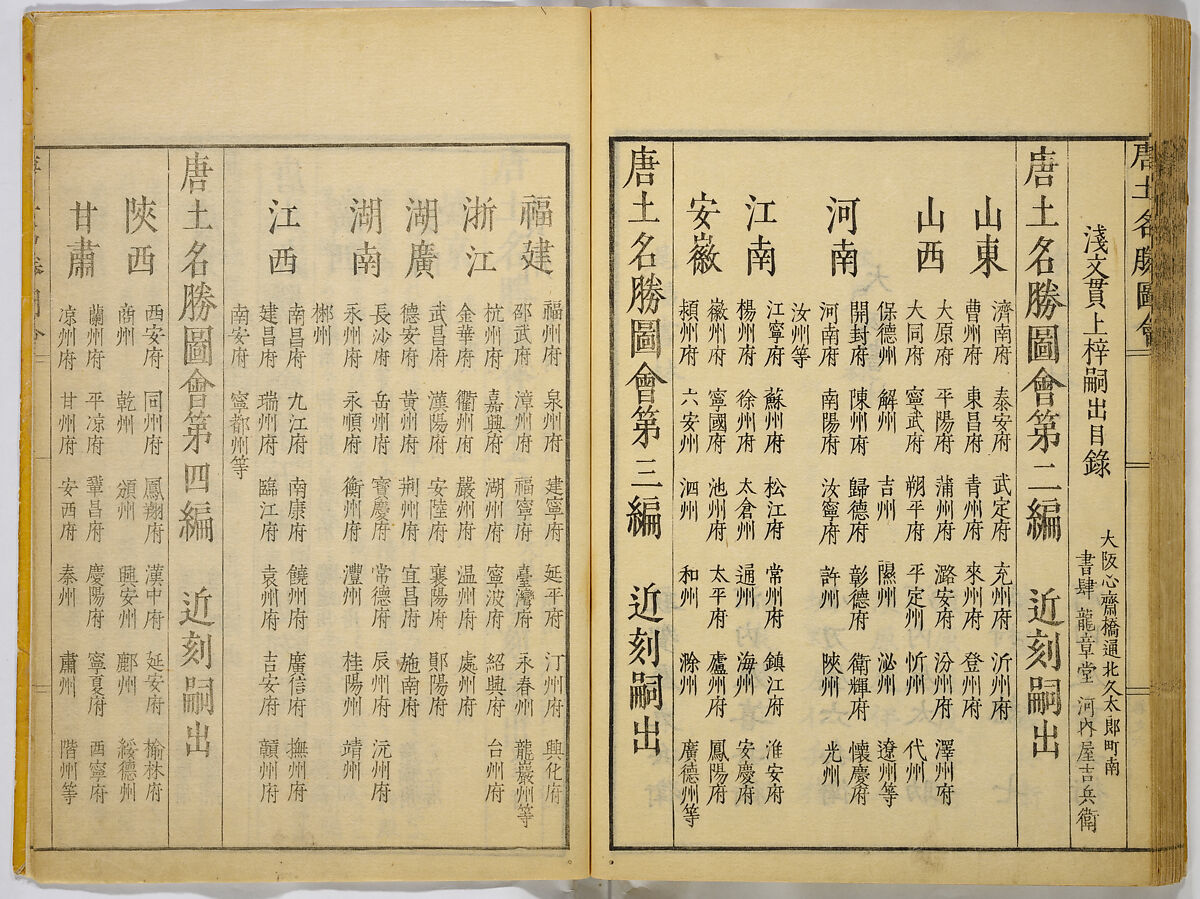 唐土名勝圖會
淺文貫上梓嗣出目錄
大阪心齋橋通北久太郎町南
書肆 龍章堂 河內屋吉兵衛
唐土名勝圖會第二編 近刻嗣出
山東
濟南府 泰安府 武定府 充州府 沂州府
曹州府 東昌府 青州府 來州府 登州府
山西
大原府 平陽府 蒲州府 潞安府 汾州府 澤州府
大同府 寧武府 朔平府 平定州 忻州 代州
保德州 解州 吉州 隰州 泌州 遼州等
河南
開封府 陳州府 歸德府 彰德府 衛輝府 懷慶府
河南府 南陽府 汝寧府 許州 陝州 光州
汝州等
江南
江寧府 蘇州府 松江府 常州府 鎮江府 淮安府
楊州府 徐州府 太倉州 通州 海州 安慶府
安徽
徽州府 寧國府 池州府 太平府 廬州府 鳳陽府
潁州府 六安州 泗州 和州 滁州 廣德州等
唐土名勝圖會第三編 近刻嗣出
福建
福州府 泉州府 建寧府 延平府 汀州府 興化府
邵武府 漳州府 福寧府 臺灣府 永春州 龍巖州等
浙江
杭州府 嘉興府 湖州府 寧波府 紹興府 台州府
金華府 衢州府 嚴州府 温州府 處州府
湖廣
武昌府 漢陽府 安陸府 襄陽府 鄖陽府
德安府 黃州府 荆州府 宜昌府 施南府
湖南
長沙府 岳州府 寶慶府 常德府 辰州府 沅州府
永州府 永順府 衡州府 灃州 桂陽州 靖州
郴州
江西
南昌府 九江府 南康府 饒州府 廣信府 撫州府
建昌府 瑞州府 臨江府 袁州府 吉安府 贛州府
南安府 寧都州等
唐土名勝圖會第四編 近刻嗣出
陝西
西安府 同州府 鳳翔府 漢中府 延安府 榆林府
商州 乾州 頒州 興安州 鄜州 綏德州
甘肅
蘭州府 平凉府 鞏昌府 慶陽府 寧夏府 西寧府
凉州府 甘州府 安西府 秦州 肅州 階州等